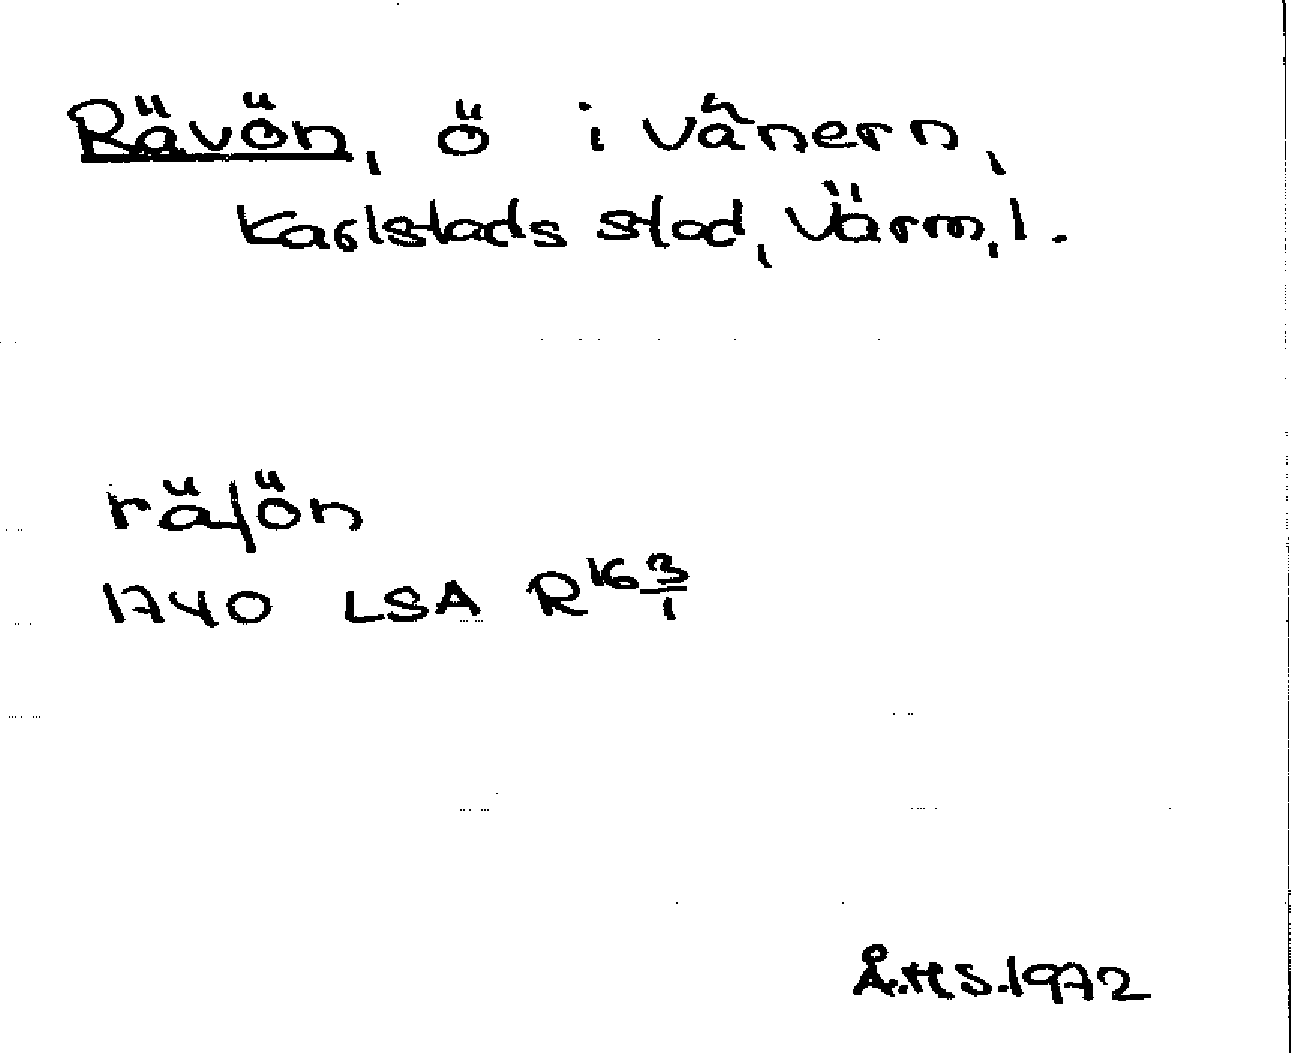 Rävön, ö i Vänern,
Karlstads stad, Värm,l.
räfön
1740 LSA R16 3/1
Å.H.S.1972